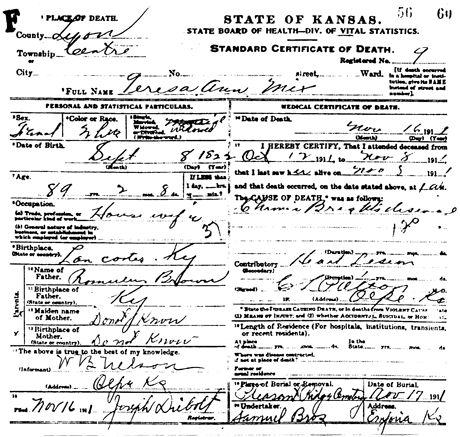 F
1 PLACE OF DEATH.
County Lyon
Township Centre
or
City
STATE OF KANSAS. 56 60
STATE BOARD OF HEALTH—DIV. OF VITAL STATISTICS.
STANDARD CERTIFICATE OF DEATH.
Registered No. 9
No. street, Ward. [If death occurred in a hospital or institution, give its NAME instead of street and number.]
2 FULL NAME Teresa Ann Mix
PERSONAL AND STATISTICAL PARTICULARS.
3 Sex 4 Color or Race. 5 Single, Married, Widowed, or Divorced. (Write the word)
White Widowed
6 Date of Birth.
Sept 8 1822
(Month) (Day) (Year)
7 Age. If LESS than 1 day, hrs. or min.?
89 yrs. 2 mos. 8 ds.
8 Occupation.
(a) Trade, profession, or particular kind of work House wife
(b) General nature of industry, business, or establishment in which employed (or employer)
9 Birthplace.
(State or country). Ky
Parents.
10 Name of Father. Brown
11 Birthplace of Father. (State or country). Ky
12 Maiden name of Mother. Do not Know
13 Birthplace of Mother. (State or country). Do not Know
14 The above is true to the best of my knowledge.
(Informant) W B Nelson
(Address) Olpe Ks
15
Filed Nov 16 1911 Joseph Diebolt
Registrar.
MEDICAL CERTIFICATE OF DEATH.
16 Date of Death.
Nov 16 1911
(Month) (Day) (Year)
17 I HEREBY CERTIFY, That I attended deceased from
Oct 12 1911 to Nov 8 1911
that I last saw her alive on Nov 8 1911
and that death occurred, on the date stated above, at 1 a.m.
The CAUSE OF DEATH* was as follows:
Chronic
120
(Duration) yrs. mos. ds.
Contributory Heart Lesion
(Secondary)
(Duration) yrs. mos. ds.
(Signed)
(Address) Olpe Ks
* State the Disease Causing Death, or in deaths from Violent Causes
(1) Means of Injury; and (2) whether Accidental, Suicidal or
18 Length of Residence (For hospitals, institutions, transients, or recent residents).
At place of death yrs. mos. ds. In the State yrs. mos. ds.
Where was disease contracted, if not at place of death?
Former or usual residence
19 Place of Burial or Removal. Date of Burial.
Pleasant Ridge Cemetery Nov 17 1911
20 Undertaker Address.
Samuel Bros Emporia Ks